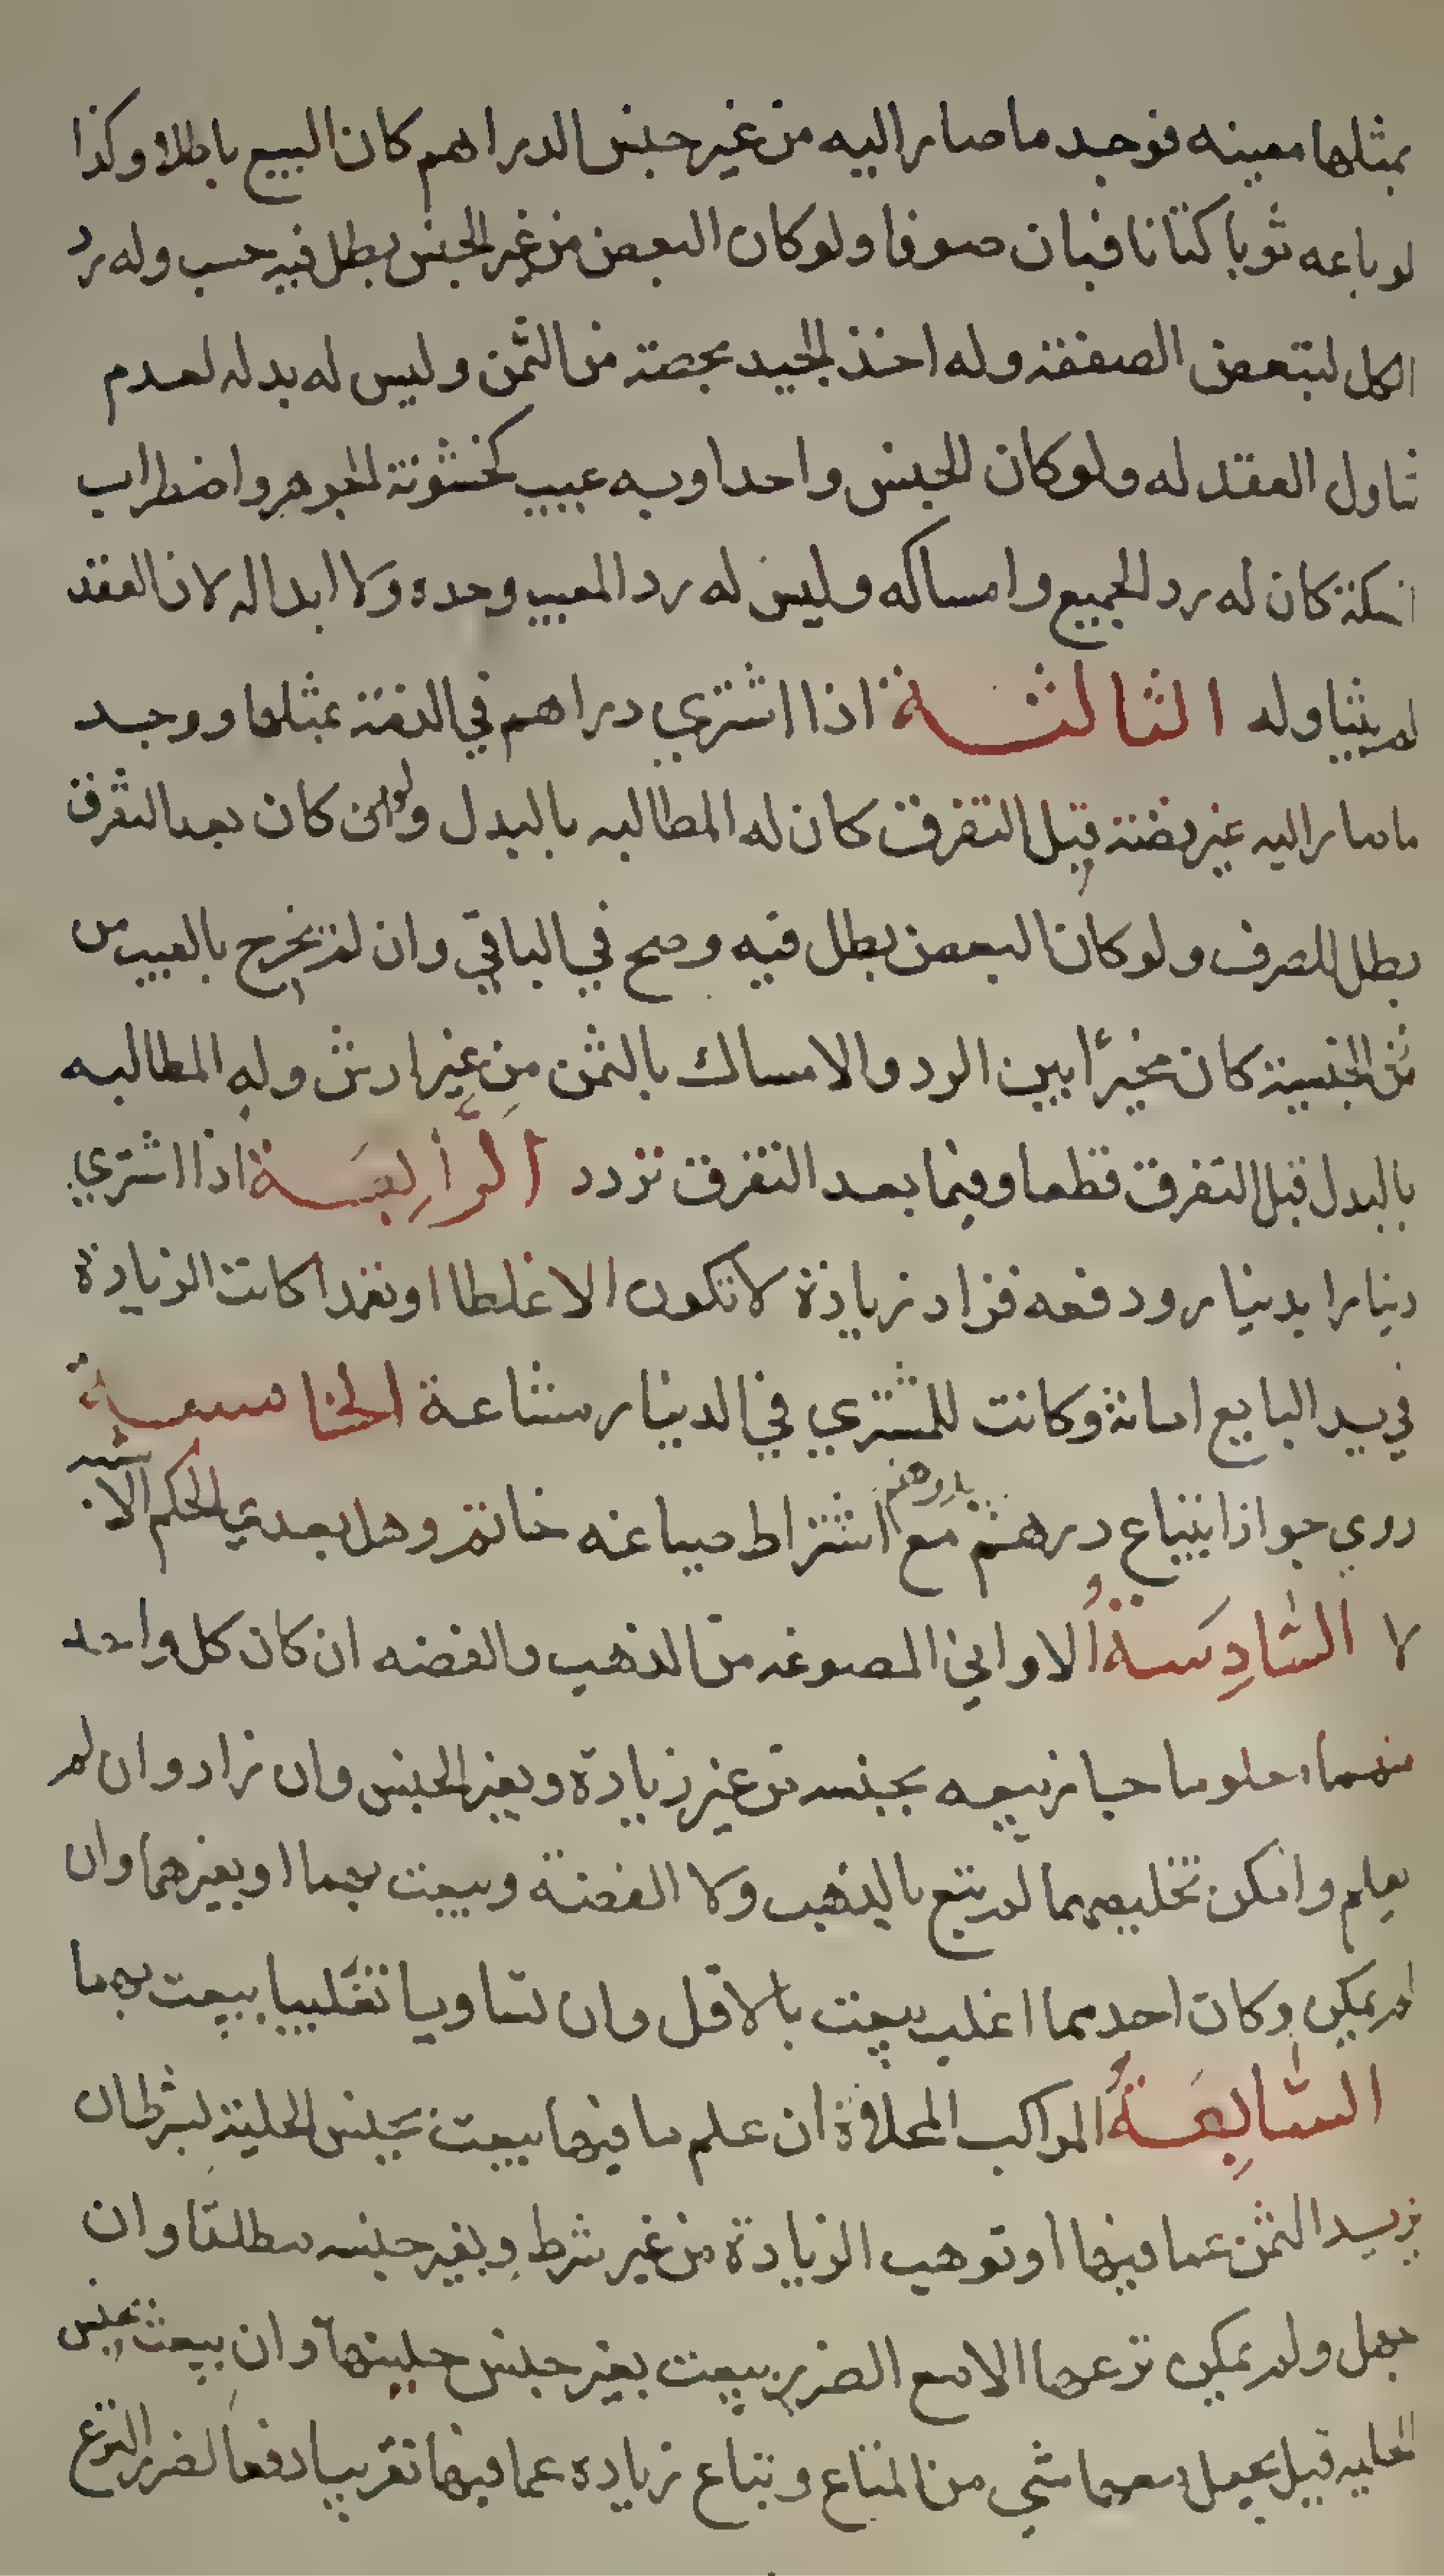 بمثلها معينه فوجد ما صار اليه من غير جنس الدراهم كان البيع باطلا وكذا
لو باعه ثوبا كتانا فبان صوفا ولو كان البعض من غير الجنس بطل فيه حسب وله رد
الكل لتبعض الصفقة وله اخذ الجيد بحصته من الثمن وليس له بدله لعدم
تناول العقد له ولو كان الجنس واحدا وبه عيب كخشونة الجوهر واضطراب
السكة كان له رد الجميع وامساكه وليس له رد المعيب وحده ولا ابداله لان العقد
لم يتناوله الثالثة اذا اشتري دراهم في الذمة بمثلها ووجد
ما صار اليه غير فضة قبل التفرق كان له المطالبه بالبدل وان كان بعد التفرق
بطل الصرف ولو كان البعض بطل فيه وصح في الباقي وان لم يخرج بالعيب من
الجنسية كان مخيرا بين الرد والامساك بالثمن من غير ارش وله المطالبه
بالبدل قبل التفرق قطعا وفيما بعد التفرق تردد الرابعة اذا اشتري
دينارا بدينار ودفعه فزاد زيادة لا تكون الا غلطا او تعمدا كانت الزيادة
في يد البايع امانة وكانت للمشتري في الدينار مشاعة الخامسة
روي جواز ابتياع درهم بدرهم مع اشتراط صياغه خاتم وهل يعدي الحكم الاشبه
لا السادسة الاواني المصوغه من الذهب والفضه ان كان كل واحد
منهما معلوما جاز بيعه بجنسه من غير زيادة وبغير الجنس وان زاد وان لم
يعلم وامكن تخليصهما لم يبع بالذهب ولا الفضة وبيعت بهما او بغيرهما وان
لم يمكن وكان احدهما اغلب بيعت بالاقل وان تساويا تغليبا بيعت بهما
السابعة المراكب المحلاة ان علم ما فيها بيعت بجنس الحلية بشرط ان
يزيد الثمن عما فيها او توهب الزيادة من غير شرط وبغير جنسه مطلقا وان
جهل ولم يمكن نزعها الا مع الضرر بيعت بغير جنس حليتها وان بيعت بجنس
الحليه قيل يجعل معها شي من المتاع وتباع بزيادة عما فيها تقريبا دفعا لضرر النزع